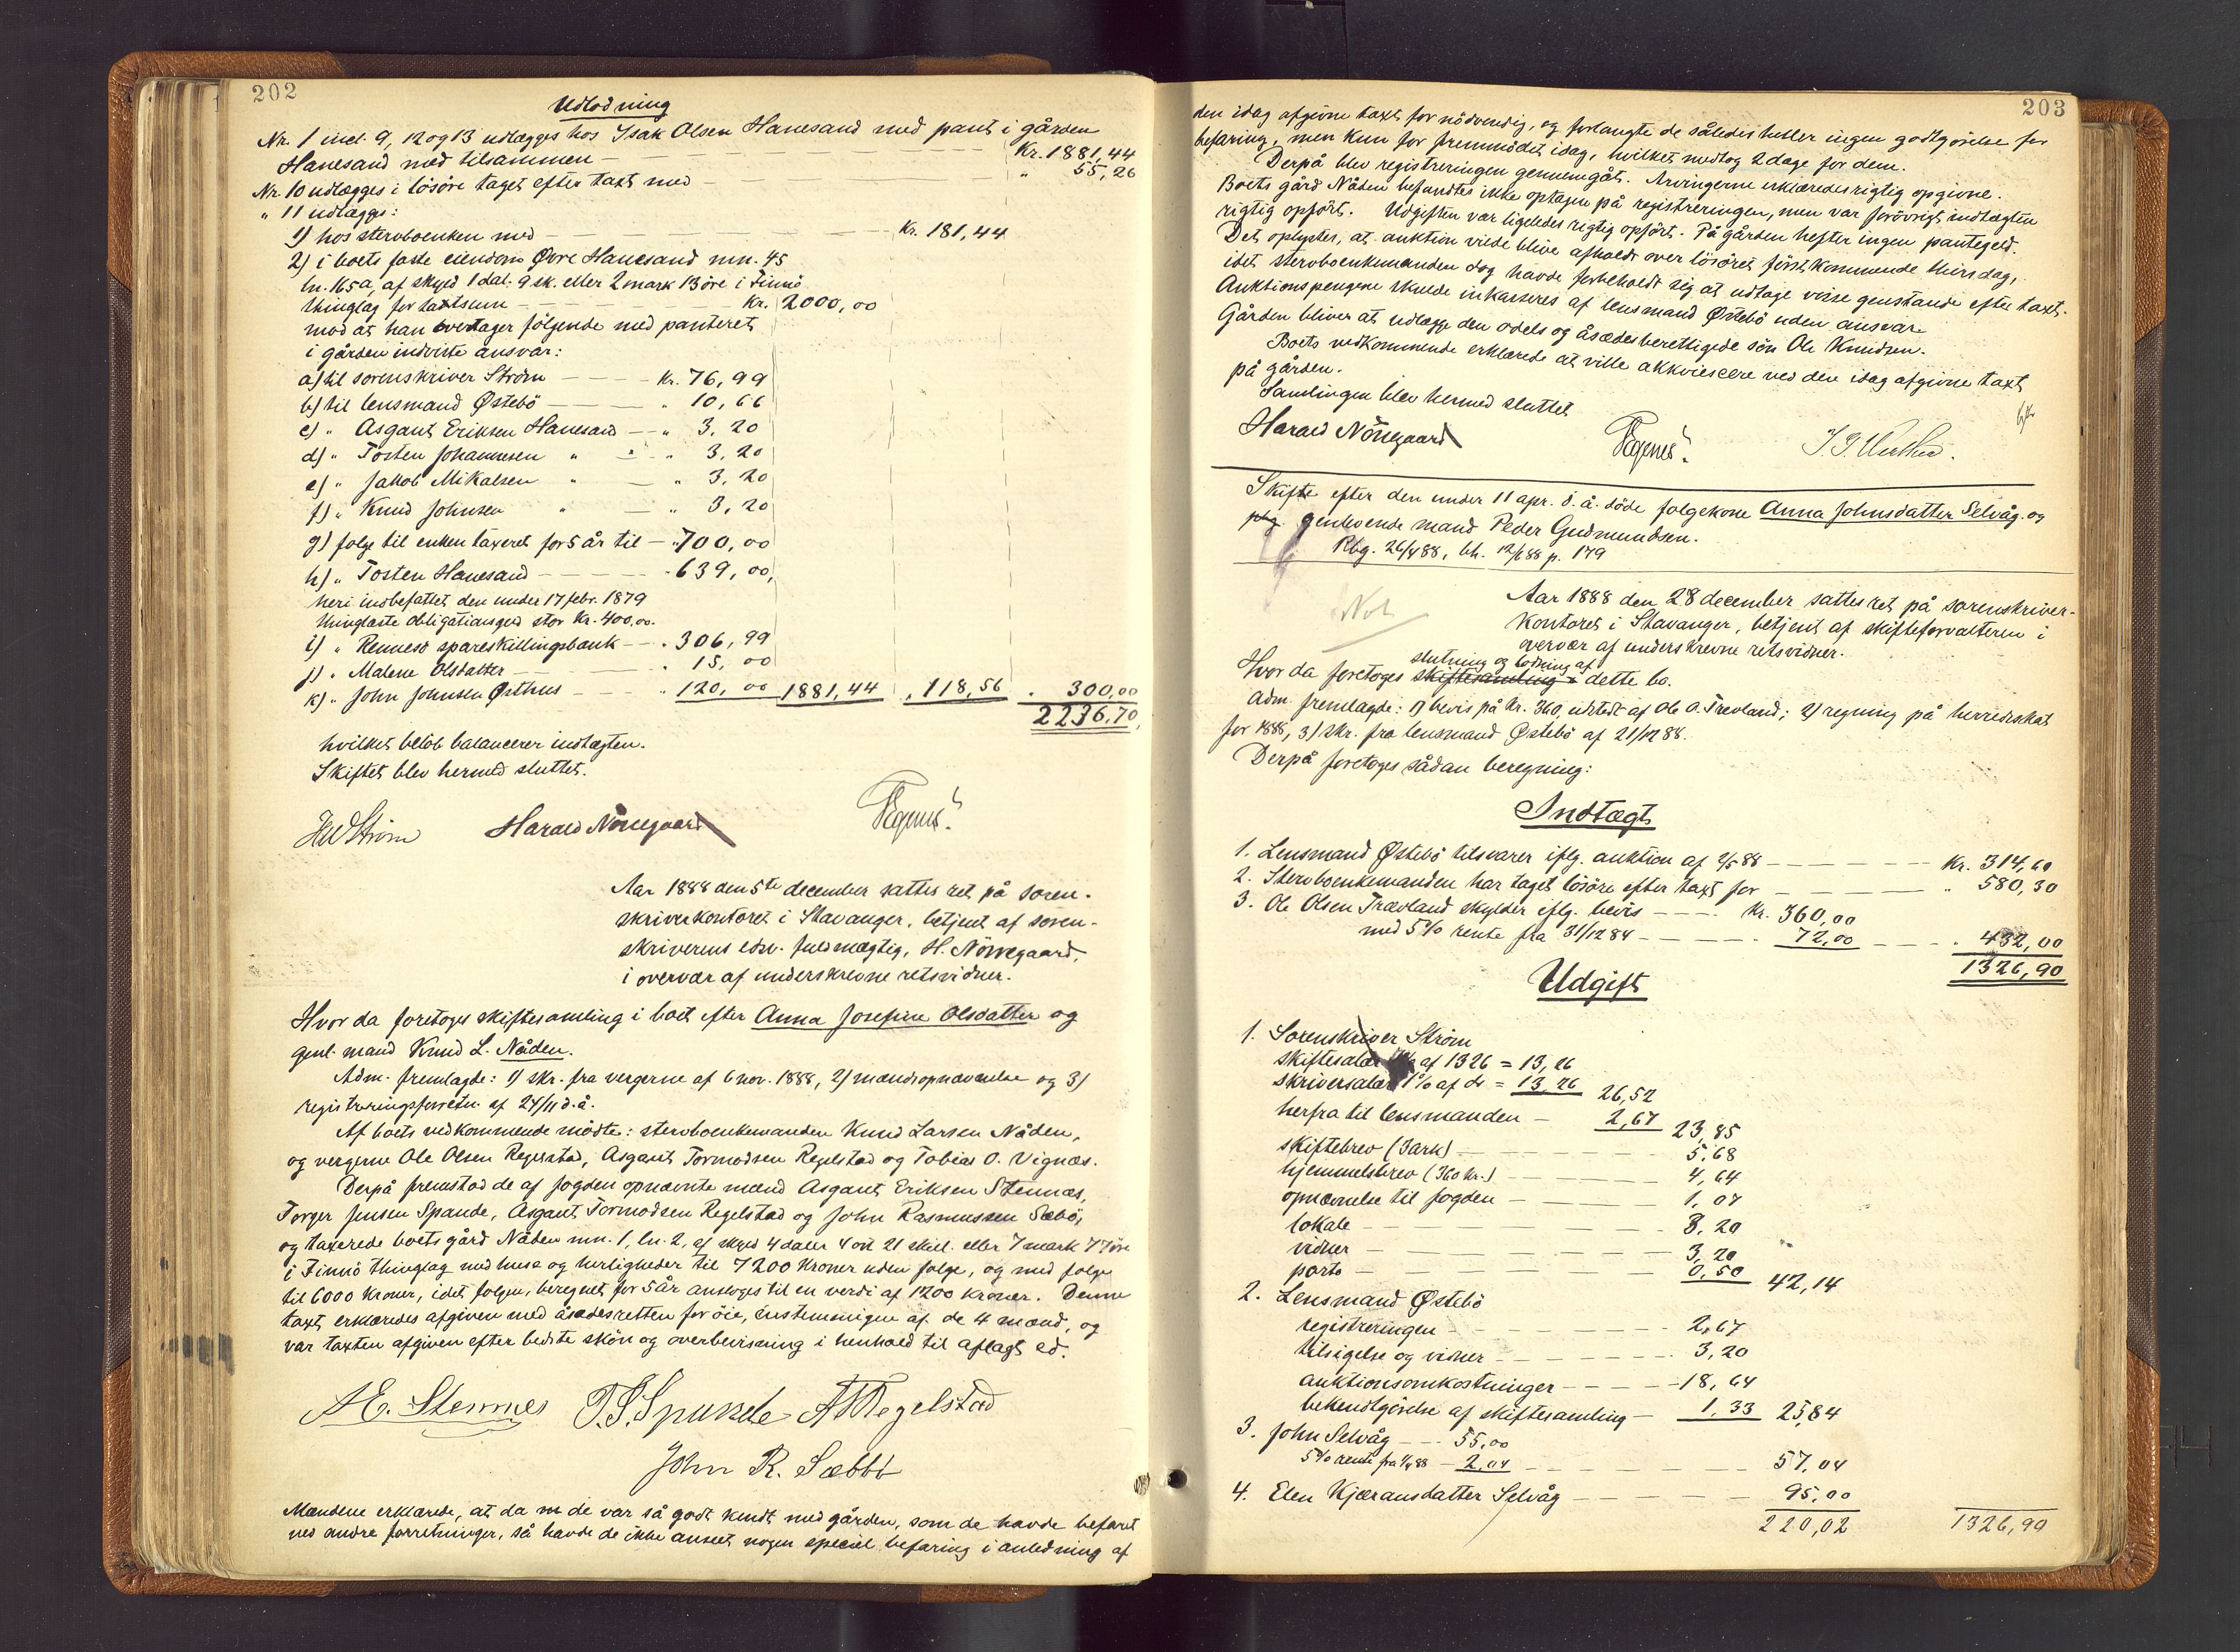 202
Udlodning
Nr. 1 incl. 9, 12 og 13 udlægges hos Isak Olsen Hanesand med pant i gården
Hanesand med tilsammen — Kr. 1881,44
Nr. 10 udlægges i løsøre taget efter taxt med — " 55,26
" 11 udlægges:
1) hos stervboenken med — Kr. 181,44
2) i boets faste eiendom Øvre Hanesand mn. 45
ln. 165a, af skyld 1 dal. 9 sk. eller 2 mark 13 øre i Finnö
thinglag for taxtsum — Kr. 2000,00
mod at han overtager følgende med panteret
i gården indviste ansvar:
a) til sorenskriver Strøm — Kr. 76,99
b) til lensmand Østebö — " 10,66
c) " Asgaut Eriksen Hanesand — " 3,20
d) " Tosten Johannesen " — " 3,20
e) " Jakob Mikalsen " — " 3,20
f) " Knud Johnsen " — " 3,20
g) folge til enken taxeret for 5 år til — " 700,00
h) " Tosten Hanesand — " 639,00,
heri indbefattet den under 17 febr. 1879
thinglæste obligationsgjeld stor Kr. 400,00.
i) " Rennesö spareskillingsbank — " 306,99
j) " Malene Olsdatter — " 15,00
k) " John Johnsen Østhus — " 120,00 1881,44 " 118,56 " 300,00
2236,70
hvilket beløb balancerer indtægten.
Skiftet blev hermed sluttet.
HW Strøm Harald Nörregaard
Aar 1888 den 5te december sattes ret på soren-
skriverkontoret i Stavanger, betjent af soren-
skriverens edsv. fuldmægtig, H. Nörregaard,
i overvær af underskrevne retsvidner.
Hvor da foretoges skiftesamling i boet efter Anna Josefine Olsdatter og
genl. mand Knud L. Nåden.
Adm. fremlagde: 1) skr. fra vergerne af 6 nov. 1888, 2) mændsopnævnelse og 3)
registreringsforretn. af 24/11 d.å.
Af boets vedkommende mødte: stervboenkemanden Knud Larsen Nåden,
og vergerne Ole Olsen Regelstad, Asgaut Tormodsen Regelstad og Tobias O. Vignæs.
Derpå fremstod de af fogden opnævnte mænd Asgaut Eriksen Stennæs,
Torger Jensen Spande, Asgaut Tormodsen Regelstad og John Rasmussen Sæbö,
og taxerede boets gård Nåden mn. 1, ln. 2, af skyld 4 daler 4 ort 21 skill. eller 7 mark 77 öre
i Finnö thinglag med huse og herligheder til 7200 Kroner uden folge, og med folge
til 6000 kroner, idet folgen, beregnet for 5 år ansloges til en verdi af 1200 kroner. Denne
taxt erklæredes afgiven med åsædesretten for öie, enstemmigen af de 4 mænd, og
var taxten afgiven efter bedste skön og overbevisning i henhold til aflagt ed.
A E. Stennes T. J. Spande A T Regelstad
John R. Sæbbö
Mændene erklærede, at da de var så godt kendt med gården, som de havde befaret
ved andre forretninger, så havde de ikke anseet nogen speciel befaring i anledning af
203
den idag afgivne taxt for nödvendig, og forlangte de således heller ingen godtgörelse for
befaring, men kun for fremmödet idag, hvilket medtog 2 dage for dem.
Derpå blev registreringen gennemgåt. Arvingerne erklæredes rigtig opgivne.
Boets gård Nåden befandtes ikke optagen på registreringen, men var forövrigt indtægten
rigtig opfört. Udgiften var ligeledes rigtig opfört. På gården hefter ingen pantegeld.
Det oplystes, at auktion vilde blive afholdt over lösöret förstkommende thirsdag,
idet stervboenkemanden dog havde forbeholdt sig at udtage visse genstande efter taxt.
Auktionspengene skulde inkasseres af lensmand Østebö uden ansvar.
Gården bliver at udlægge den odels og åsædesberettigede sön Ole Knudsen.
Boets vedkommende erklærede at ville akkviescere ved den idag afgivne taxt
på gården.
Samlingen blev hermed sluttet
Harald Nörregaard
Skifte efter den under 11 apr. d. å. döde folgekone Anna Johnsdatter Selvåg og
genlevende mand Peder Gudmundsen.
Rbg. 26/4 88, bh. 12/6 88 p. 179
Not
Aar 1888 den 28 december sattes ret på sorenskriver-
kontoret i Stavanger, betjent af skifteforvalteren i
overvær af underskrevne retsvidner.
slutning og lodning af
Hvor da foretoges skiftesamling i dette bo.
Adm. fremlagde: 1) bevis på kr. 360, udstedt af Ole O. Trævland; 2) regning på herredsskat
for 1888, 3) skr. fra lensmand Østebö af 21/12 88.
Derpå foretoges sådan beregning:
Indtægt
1. Lensmand Østebö tilsvarer iflg. auktion af 2/5 88 — Kr. 314,60
2. Stervboenkemanden har taget lösöre efter taxt for — " 580,30
3. Ole Olsen Trævland skylder iflg. bevis — Kr. 360,00
med 5% rente fra 31/12 84 — 72,00 — " 432,00
1326,90
Udgift
1. Sorenskriver Strøm
skiftesalær af 1326 = 13,26
skriversalær 1% af do = 13,26 26,52
herfra til lensmanden — 2,67 23,85
skiftebrev (3 ark) — 5,68
hjemmelsbrev (360 kr.) — 4,64
opnævnelse til fogden — 1,07
lokale — 3,20
vidner — 3,20
porto — 0,50 42,14
2. Lensmand Østebö
registreringen — 2,67
tilsigelse og vidner — 3,20
auktionsomkostninger — 18,64
bekendtgörelse af skiftesamling — 1,33 25,84
3. John Selvåg — 55,00
5% rente fra 1/4 88 — 2,04 — 57,04
4. Elen Kjæransdatter Selvåg — 95,00
220,02 1326,90